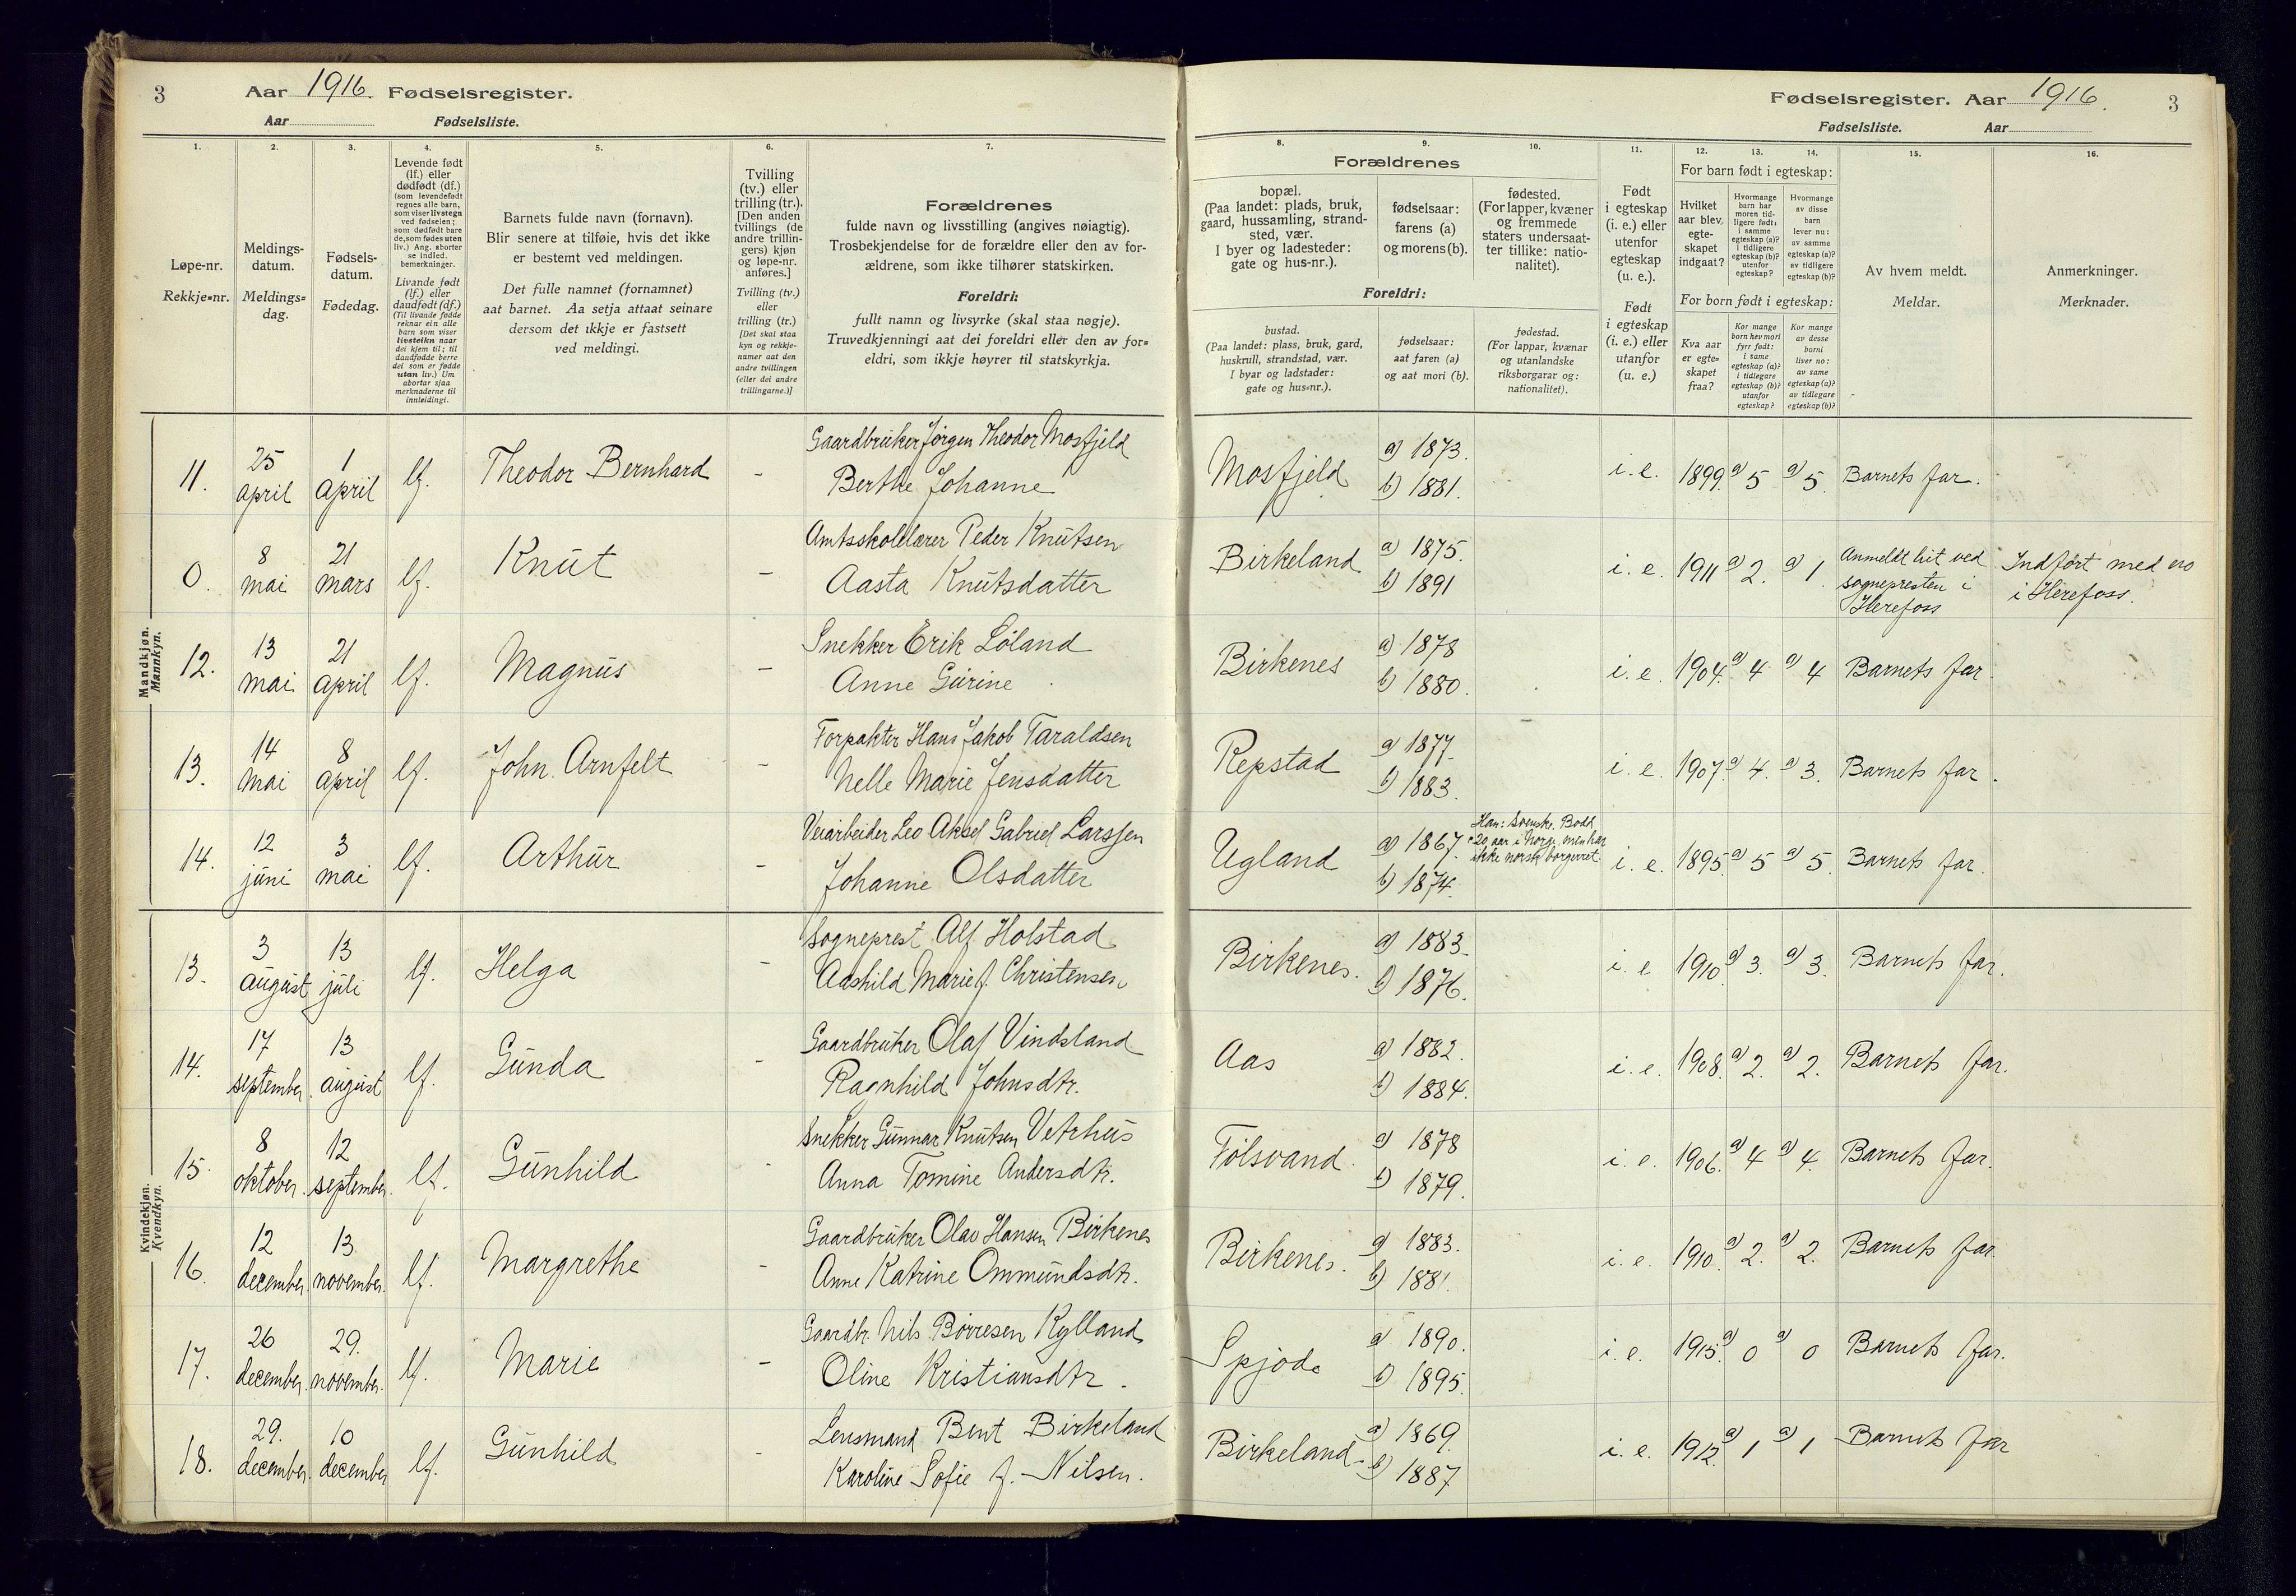 3 Aar 1916. Fødselsregister.
Aar Fødselsliste.
Fødselsregister. Aar 1916. 3
Fødselsliste. Aar
1.
Løpe-nr.
Rekkje=nr.
2.
Meldings-
datum.
Meldings=
dag.
3.
Fødsels-
datum.
Fødedag.
4.
Levende født
(lf.) eller
dødfødt (df.)
(som levendefødt
regnes alle barn,
som viser livstegn
ved fødselen;
som dødfødt bare
de, som fødes uten
liv.) Ang. aborter
se indled.
bemerkninger.
Livande født
(lf.) eller
daudfødt (df.)
(Til livande fødde
reknar ein alle
barn som viser
livsteikn naar
dei kjem til; til
daudfødde berre
dei som er fødde
utan liv.) Um
abortar sjaa
merknaderne til
innleidingi.
5.
Barnets fulde navn (fornavn).
Blir senere at tilføie, hvis det ikke
er bestemt ved meldingen.
Det fulle namnet (fornamnet)
aat barnet. Aa setja attaat seinare
dersom det ikkje er fastsett
ved meldingi.
6.
Tvilling
(tv.) eller
trilling (tr.).
[Den anden
tvillings (de
andre trillin-
gers) kjøn
og løpe-nr.
anføres.]
Tvilling (tv.)
eller
trilling (tr.)
[Det skal staa
kyn og rekkje-
numer aat den
andre tvillingen
(eller dei andre
trillingarne.)]
7.
Forældrenes
fulde navn og livsstilling (angives nøiagtig).
Trosbekjendelse for de forældre eller den av for-
ældrene, som ikke tilhører statskirken.
Foreldri:
fullt namn og livsyrke (skal staa nøgje).
Truvedkjenningi aat dei foreldri eller den av for=
eldri, som ikkje høyrer til statskyrkja.
Forældrenes
8.
bopæl.
(Paa landet: plads, bruk,
gaard, hussamling, strand-
sted, vær.
I byer og ladesteder:
gate og hus-nr.).
9.
fødselsaar:
farens (a)
og morens (b).
10.
fødested.
(For lapper, kvæner
og fremmede
staters undersaat-
ter tillike: natio-
nalitet).
Foreldri:
bustad.
(Paa landet: plass, bruk, gard,
huskrull, strandstad, vær.
I byar og ladstader:
gate og hus=nr.).
fødselsaar:
aat faren (a)
og aat mori (b).
fødestad.
(For lappar, kvænar
og utanlandske
riksborgarar og:
nationalitet).
11.
Født
i egteskap
(i. e.) eller
utenfor
egteskap
(u. e.).
Født
i egteskap
(i. e.) eller
utanfor
(u. e.)
For barn født i egteskap:
12.
Hvilket
aar blev
egte-
skapet
indgaat?
13.
Hvormange
barn har
moren tid-
ligere født:
i samme
egteskap (a)?
i tidligere
egteskap (b)?
utenfor
egteskap?
14.
Hvormange
av disse
barn
lever nu:
av samme
egteskap (a)?
av tidligere
egteskap (b)?
For born født i egteskap:
Kva aar
er egte=
skapet
fraa?
Kor mange
born hev mori
fyrr født:
i same
egteskap (a)?
i tidlegare
egteskap (b)?
utanfor
egteskap?
Kor mange
av desse
borni
liver no:
av same
egteskap (a)?
av tidlegare
egteskap (b)?
15.
Av hvem meldt.
Meldar.
16.
Anmerkninger.
Merknader.
Mandkjøn.
Mannkyn.
11. 25 april 1 april lf. Theodor Bernhard - Gaardbruker Jørgen Theodor Mosfjeld
Berthe Johanne Mosfjeld a) 1873. b) 1881. i. e. 1899. a) 5 a) 5. Barnets far.
0. 8 mai 21 mars lf. Knut - Amtsskolelærer Peder Knutsen
Aasta Knutsdatter Birkeland a) 1875. b) 1891 i. e. 1911 a) 2. a) 1. Anmeldt hit ved
sognepresten i
Herefoss
Indført med no
i Herefoss.
12. 13 mai 21 april lf. Magnus - Snekker Erik Løland
Anne Gurine Birkenes a) 1878 b) 1880. i. e. 1904. a) 4 a) 4 Barnets far.
13. 14 mai 8 april lf. John Arnfelt - Forpakter Hans Jakob Taraldsen
Nelle Marie Jensdatter Repstad a) 1877. b) 1883. i. e. 1907. a) 4. a) 3. Barnets far.
14. 12 juni 3 mai lf. Arthur - Veiarbeider Leo Aksel Gabriel Larssen
Johanne Olsdatter Ugland a) 1867. b) 1874. Han: svenske. Bodd
20 aar i Norge, men har
ikke norsk borgerret.
i. e. 1895. a) 5 a) 5. Barnets far.
Kvindekjøn.
Kvendkyn.
13. 3 august 13 juli lf. Helga - Sogneprest Alf Holstad
Aashild Marie f. Christensen Birkenes. a) 1883. b) 1876. i. e. 1910 a) 3. a) 3. Barnets far.
14. 17 september. 13 august lf. Gunda - Gaardbruker Olaf Vindsland
Ragnhild Johnsdtr. Aas a) 1882. b) 1884. i. e. 1908. a) 2. a) 2. Barnets far.
15. 8 oktober. 12 september. lf. Gunhild - Snekker Gunnar Knutsen Vetrhus
Anna Tomine Andersdtr. Følsvand. a) 1878 b) 1879. i. e. 1906. a) 4 a) 4. Barnets far.
16. 12 december. 13 november. lf. Margrethe - Gaardbruker Olav Hansen Birkenes
Anne Katrine Ommundsdtr. Birkenes. a) 1883. b) 1881. i. e. 1910. a) 2. a) 2. Barnets far.
17. 26 december. 29. november. lf. Marie - Gaardbr. Nils Børresen Kylland
Oline Kristiansdtr. Spjode a) 1890. b) 1895. i. e. 1915. a) 0 a) 0 Barnets far.
18. 29. december. 10 december lf. Gunhild - Lensmand Bent Birkeland
Karoline Sofie f. Nilsen. Birkeland a) 1869. b) 1887 i. e. 1912. a) 1 a) 1 Barnets far